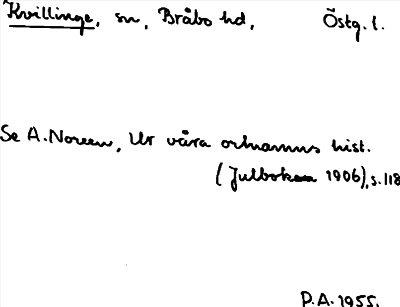 Kvillinge, sn, Bråbo hd, Östg. l.
Se A. Noreen, Ur våra ortnamns hist.
(Julboken 1906), s. 118
P.A. 1955.